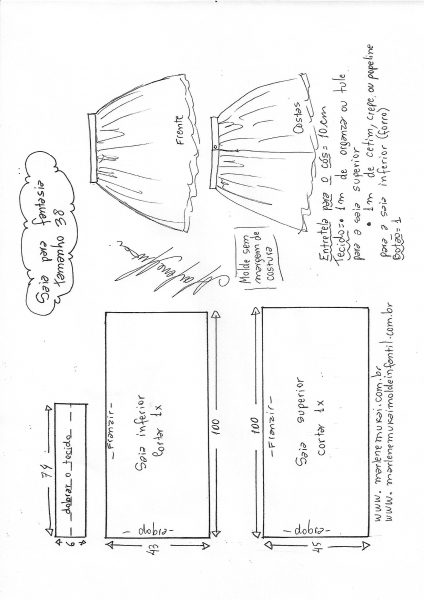 Saia para fantasia
Tamanho 38
Frente
Costas
Entretela para o cós = 10cm
Tecido = • 1m de organza ou tule
para a saia superior
• 1m de cetim, crepe ou popeline
para a saia inferior (forro)
Botão = 1
Molde sem
margem de
costura
74
6
dobrar o tecido
- Franzir -
Saia inferior
Cortar 1x
100
-dobra-
43
- Franzir -
Saia superior
cortar 1x
100
-dobra-
45
www.marlenemukai.com.br
www.marlenemukaimoldeinfantil.com.br